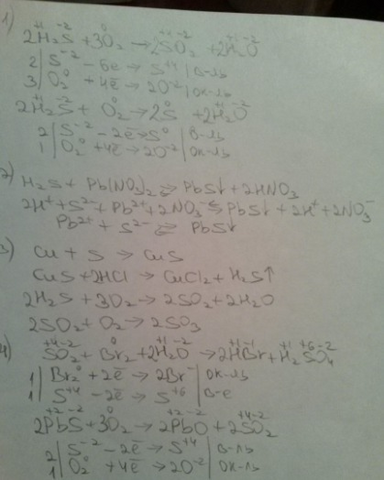 1)
+1 -2 0 +4 -2 +1 -2
2H₂S + 3O₂ → 2SO₂ + 2H₂O
2 | S⁻² - 6e̅ → S⁺⁴ | в-ль
3 | O₂⁰ + 4e̅ → 2O⁻² | ок-ль
2H₂S + O₂ → 2S + 2H₂O
2 | S⁻² - 2e̅ → S⁰ | в-ль
1 | O₂⁰ + 4e̅ → 2O⁻² | ок-ль
2) H₂S + Pb(NO₃)₂ ⇄ PbS↓ + 2HNO₃
2H⁺ + S²⁻ + Pb²⁺ + 2NO₃⁻ ⇆ PbS↓ + 2H⁺ + 2NO₃⁻
Pb²⁺ + S²⁻ ⇄ PbS↓
3) Cu + S → CuS
CuS + 2HCl → CuCl₂ + H₂S↑
2H₂S + 3O₂ → 2SO₂ + 2H₂O
2SO₂ + O₂ → 2SO₃
4) +4 -2 0 +1 -2 +1 -1 +1 +6 -2
SO₂ + Br₂ + 2H₂O → 2HBr + H₂SO₄
1 | Br₂⁰ + 2e̅ → 2Br⁻ | ок-ль
1 | S⁺⁴ - 2e̅ → S⁺⁶ | в-е
+2 -2 0 +2 -2 +4 -2
2PbS + 3O₂ → 2PbO + 2SO₂
2 | S⁻² - 2e̅ → S⁺⁴ | в-ль
1 | O₂⁰ + 4e̅ → 2O⁻² | ок-ль